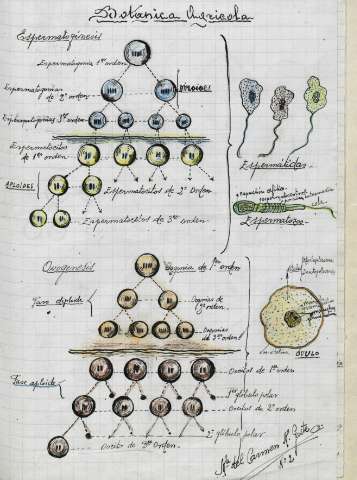 Botánica Agrícola
Espermatogénesis
Espermatogonia 1er orden
Espermatogonias
de 2º orden
DIPLOIDES
Espermatogonias 3er orden
Espermatocitos
de 1er orden
APLOIDES
Espermatocitos de 2º Orden
Espermatocitos de 3er orden
Espermátidas
cola
Espermatozoo
Ovogenesis
Ovogonia de 1er orden
Fase diploide
Ovogonias de
2º orden
Ovogonias
de 3er orden
ÓVULO
Fase aploide
Ovocito de 1er orden
1er glóbulo polar
Ovocitos de 2º orden
2º glóbulo polar
Ovocito de 3er Orden
Mª del Carmen
Nº 21